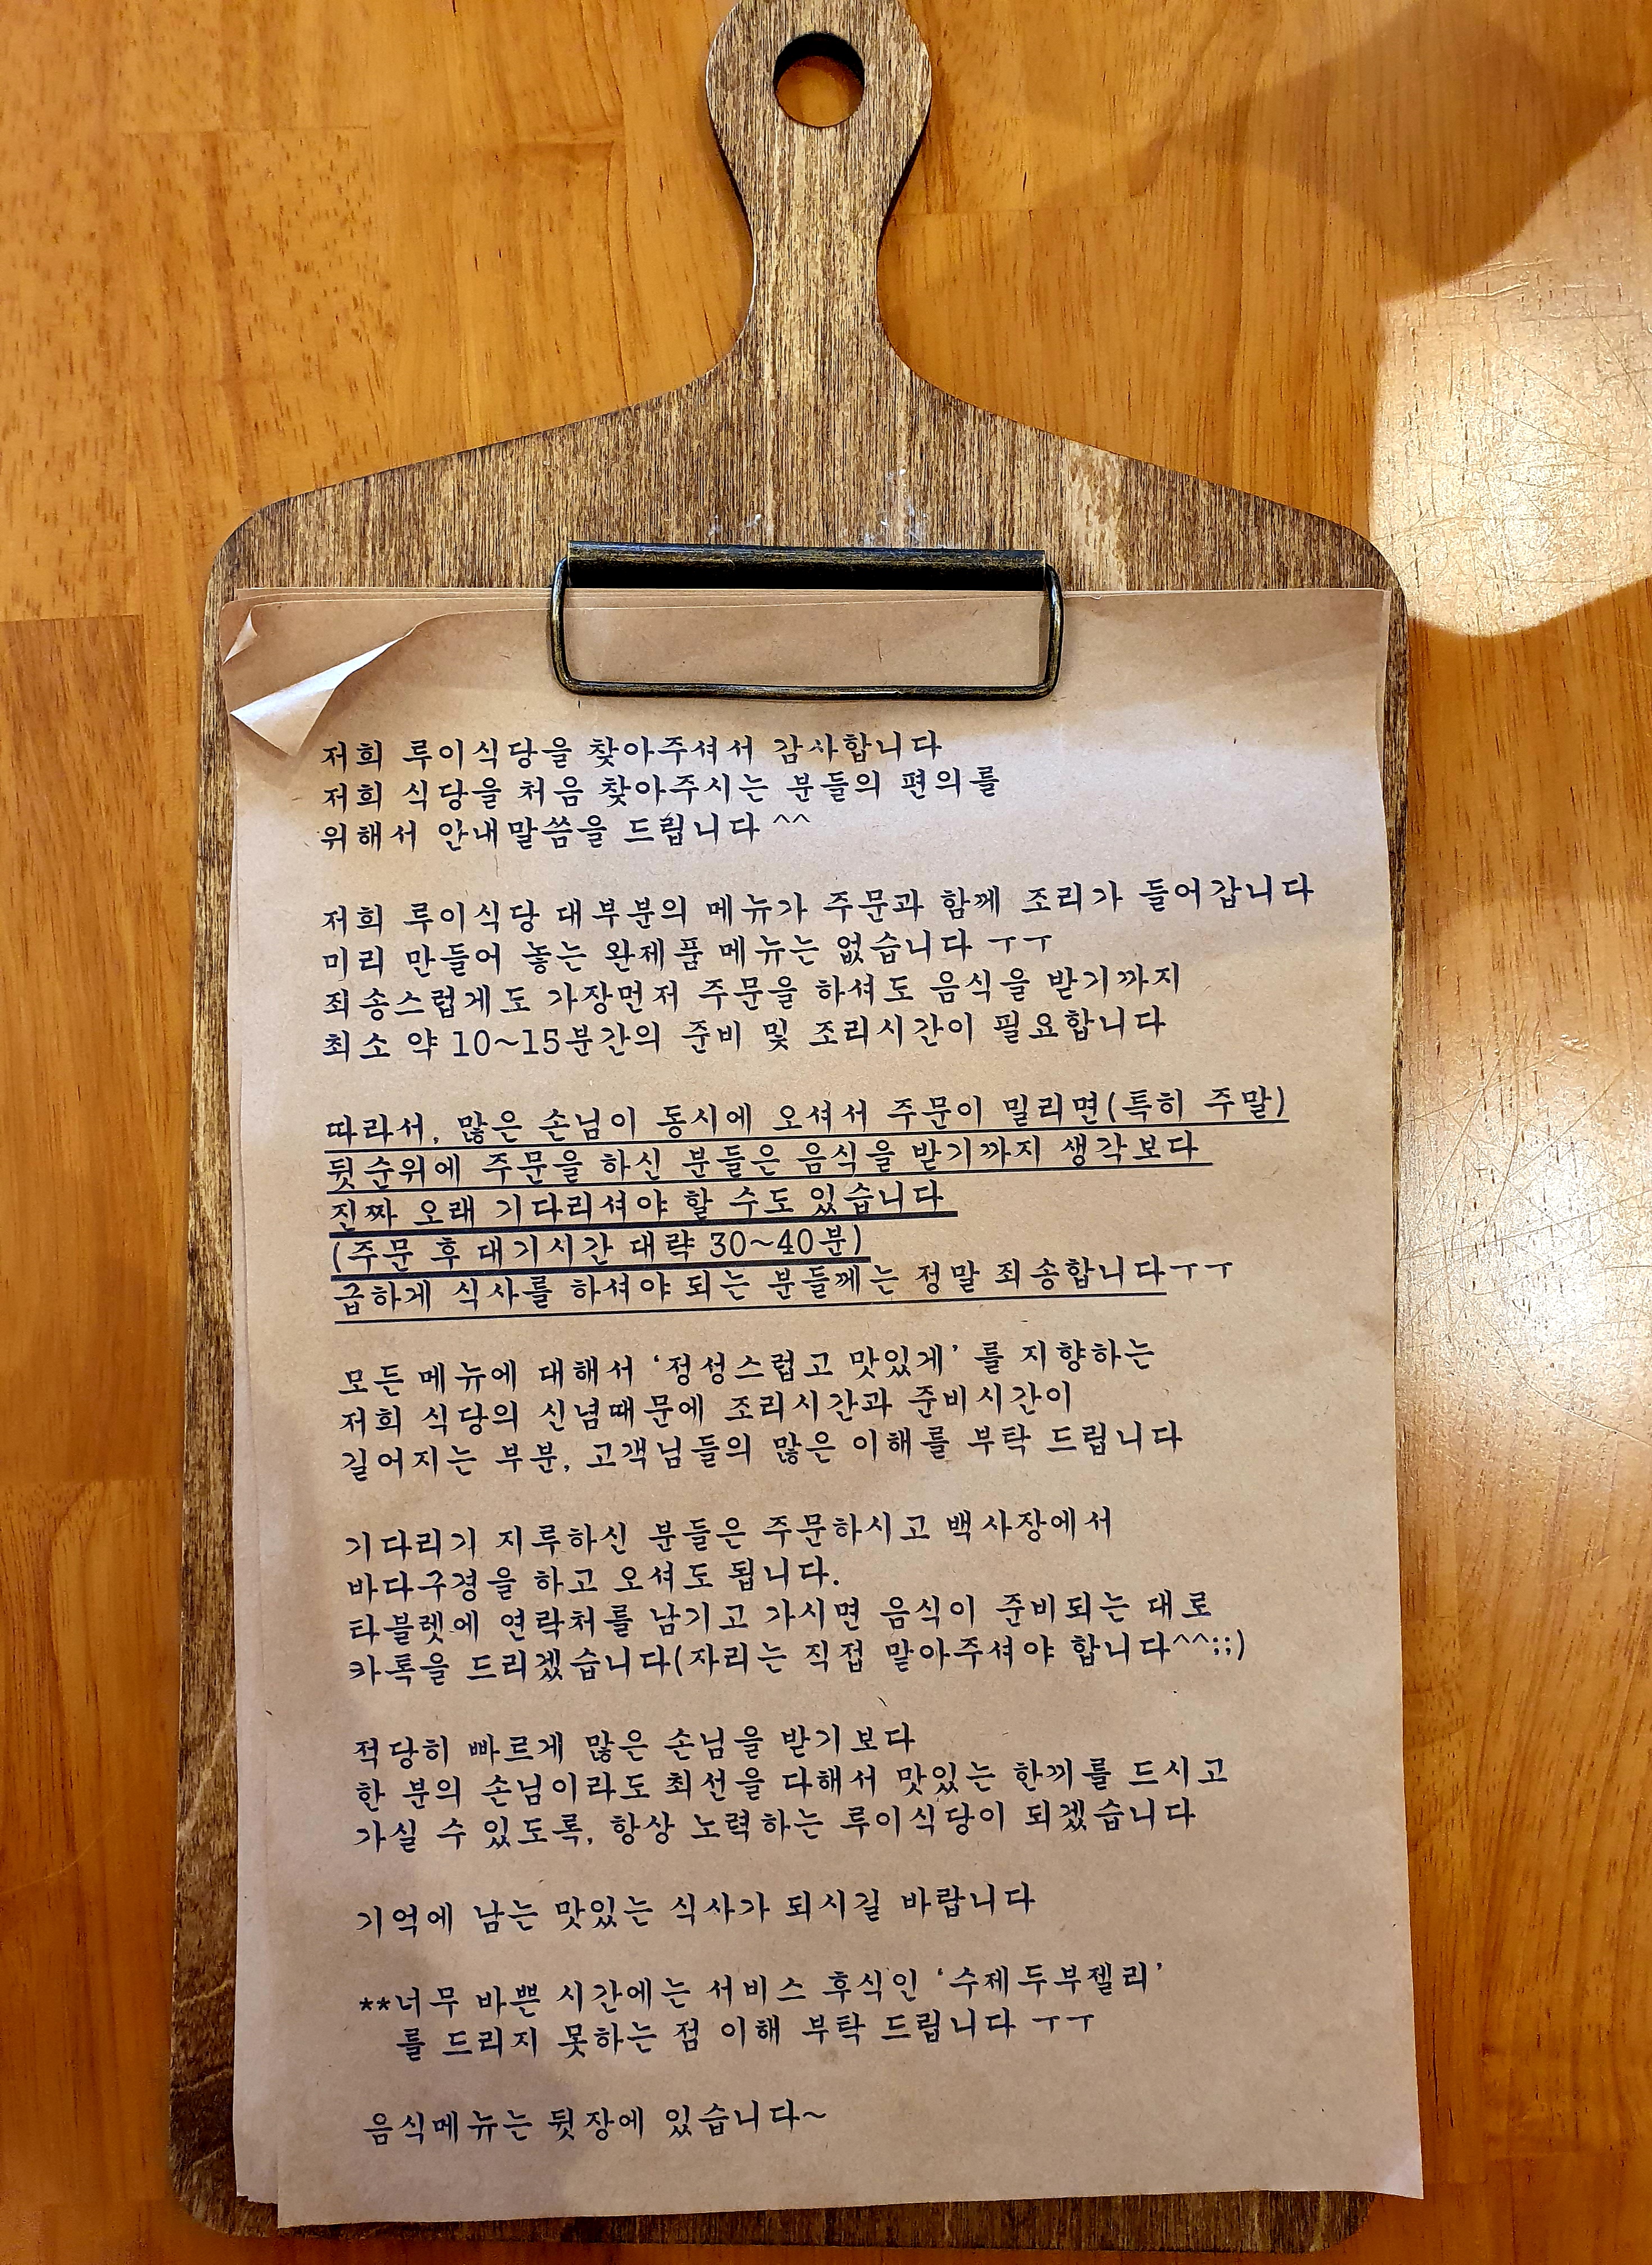 저희 루이식당을 찾아주셔서 감사합니다
저희 식당을 처음 찾아주시는 분들의 편의를
위해서 안내말씀을 드립니다 ^^
저희 루이식당 대부분의 메뉴가 주문과 함께 조리가 들어갑니다
미리 만들어 놓는 완제품 메뉴는 없습니다 ㅜㅜ
죄송스럽게도 가장먼저 주문을 하셔도 음식을 받기까지
최소 약 10~15분간의 준비 및 조리시간이 필요합니다
따라서, 많은 손님이 동시에 오셔서 주문이 밀리면(특히 주말)
뒷순위에 주문을 하신 분들은 음식을 받기까지 생각보다
진짜 오래 기다리셔야 할 수도 있습니다
(주문 후 대기시간 대략 30~40분)
급하게 식사를 하셔야 되는 분들께는 정말 죄송합니다ㅜㅜ
모든 메뉴에 대해서 ‘정성스럽고 맛있게’ 를 지향하는
저희 식당의 신념때문에 조리시간과 준비시간이
길어지는 부분, 고객님들의 많은 이해를 부탁 드립니다
기다리기 지루하신 분들은 주문하시고 백사장에서
바다구경을 하고 오셔도 됩니다.
타블렛에 연락처를 남기고 가시면 음식이 준비되는 대로
카톡을 드리겠습니다(자리는 직접 맡아주셔야 합니다^^;;)
적당히 빠르게 많은 손님을 받기보다
한 분의 손님이라도 최선을 다해서 맛있는 한끼를 드시고
가실 수 있도록, 항상 노력하는 루이식당이 되겠습니다
기억에 남는 맛있는 식사가 되시길 바랍니다
**너무 바쁜 시간에는 서비스 후식인 ‘수제두부젤리’
를 드리지 못하는 점 이해 부탁 드립니다 ㅜㅜ
음식메뉴는 뒷장에 있습니다~